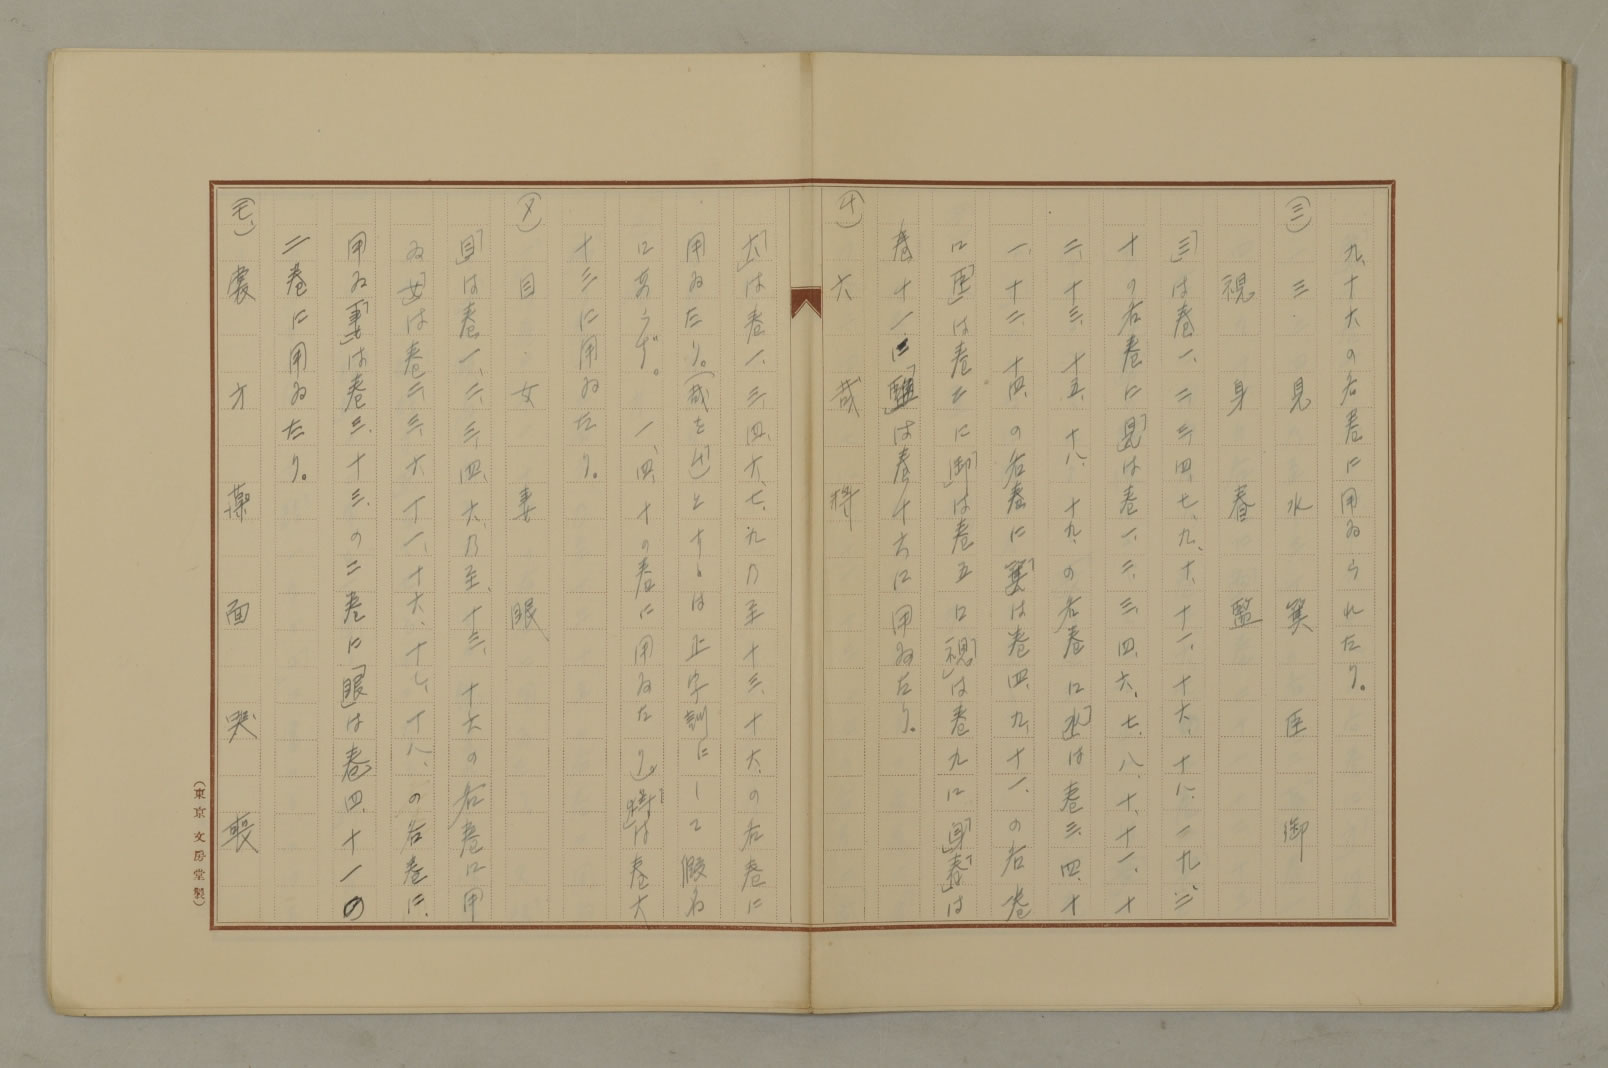 九、十六の各巻に用ゐられたり。
(ミ) 三 見 水 箕 臣 御
視 身 春 監
「三」は巻一、二、三、四、七、九、十、十一、十六、十八、十九、二
十の各巻に「見」は巻一、二、三、四、六、七、八、十、十一、十
二、十三、十五、十八、十九、の各巻に「水」は巻三、四、十
一、十二、十四、の各巻に「箕」は巻四、九、十一、の各巻
に「臣」は巻二に「御」は巻五に「視」は巻九に「身」「春」は
巻十一に「監」は巻十六に用ゐたり。
(ム) 六 武
「六」は巻一、三、四、六、七、九乃至十三、十六、の各巻に
用ゐたり。
にあらず。 一、四、十の巻に用ゐたり は巻六
十三に用ゐたり。
(メ) 目 女 妻 眼
「目」は巻一、二、三、四、六、乃至、十三、十六の各巻に用
ゐ「女」は巻二、三、六、十一、十六、十七、十八、の各巻に、
用ゐ「妻」は巻三、十三、の二巻に「眼」は巻四、十一の
二巻に用ゐたり。
(モ) 裳 方 藻 面 哭 喪
(東京 文房堂製)